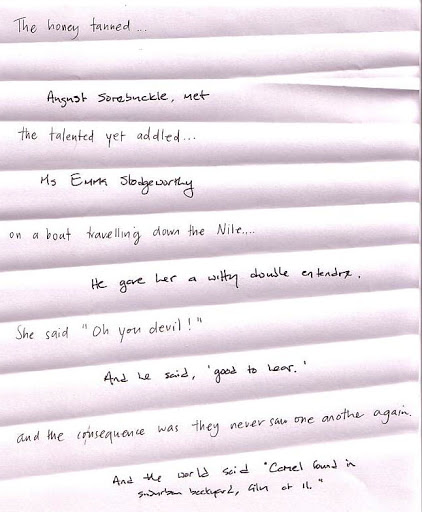 The honey tanned...
August Sorebuckle, met
the talented yet addled...
Ms Emma Slodgeworthy
on a boat travelling down the Nile....
He gave her a witty double entendre.
She said "Oh you devil!"
And he said, 'good to hear.'
and the consequence was they never saw one another again.
And the world said "Camel found in
suburban backyard, film at 11."